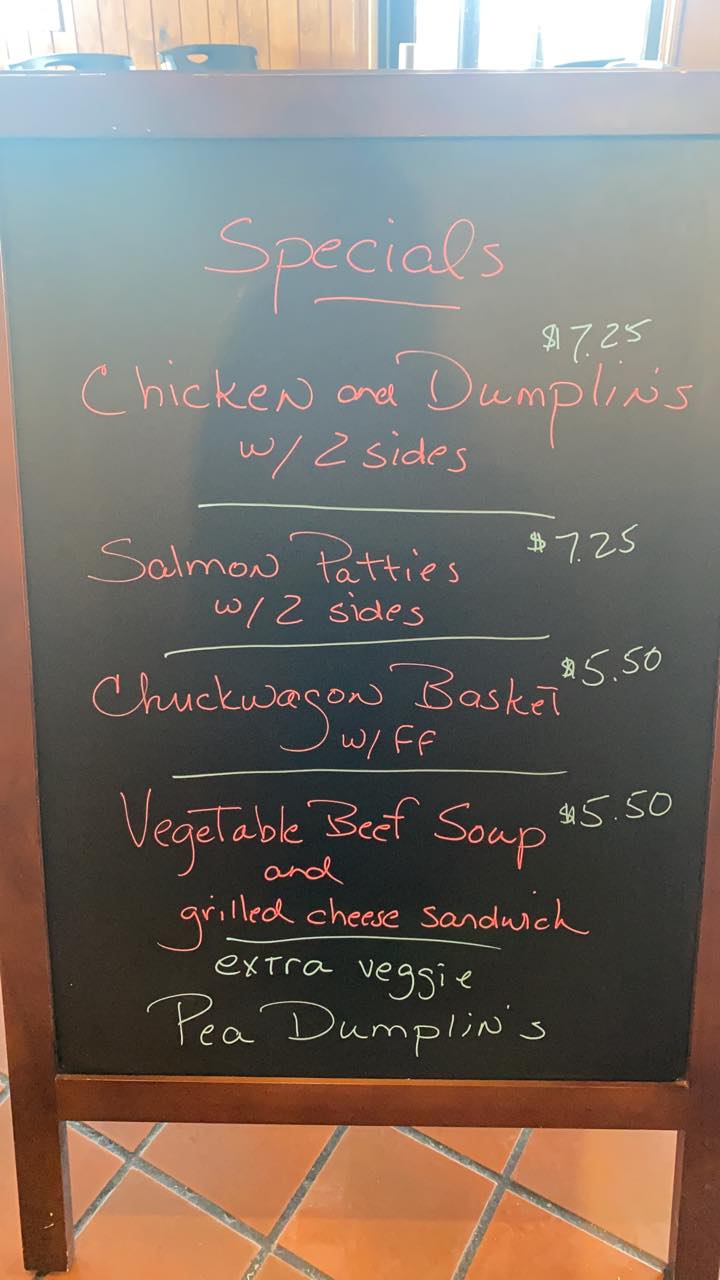 Specials
$7.25
Chicken and Dumplin's
w/2 sides
Salmon Patties $7.25
w/2 sides
Chuckwagon Basket $5.50
w/FF
Vegetable Beef Soup $5.50
and
grilled cheese sandwich
extra veggie
Pea Dumplin's